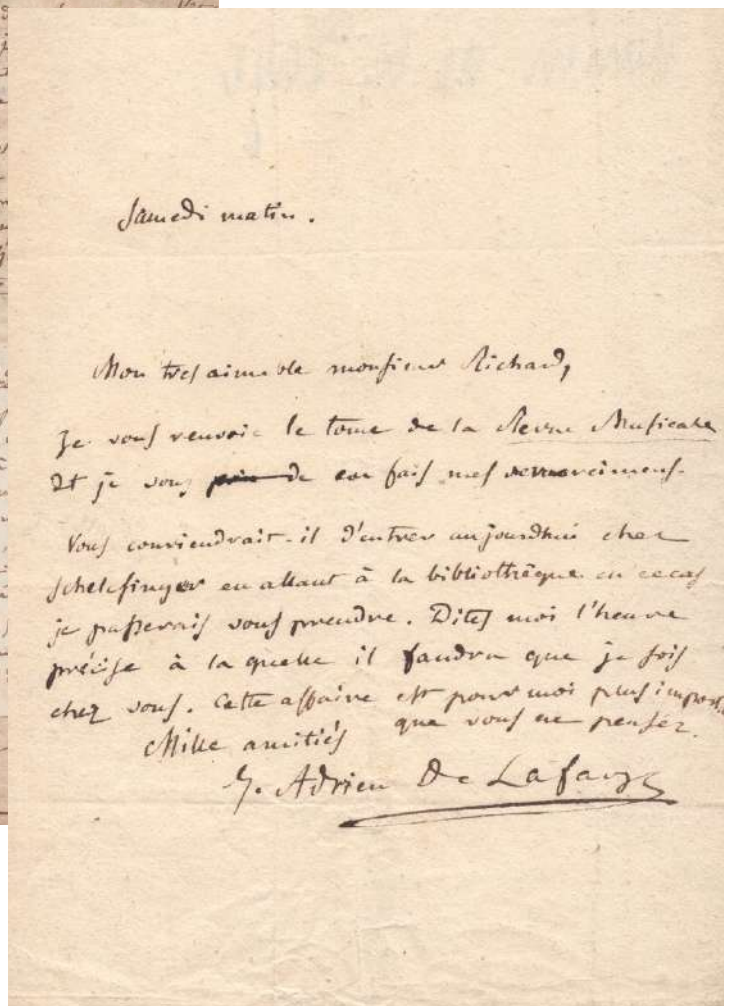 Samedi matin.
Mon tres aimable monsieur Richard,
Je vous renvoie le tome de la Revue Musicale
Et je vous de en fais mes remerciemens.
Vous conviendrait-il d'entrer aujourdhui chez
Schelesinger en allant à la bibliothèque en ce cas
je passerais vous prendre. Dites moi l'heure
précise à la quelle il faudra que je sois
chez vous. Cette affaire est pour moi plus important
que vous ne pensez.
Mille amitiés
J. Adrien De Lafage